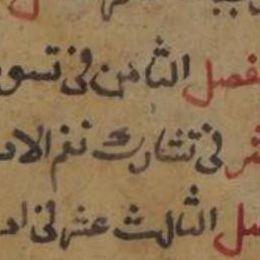 فصل الثامن في تسو
شر في تشارك نغم الاد
صل الثالث عشر في اد